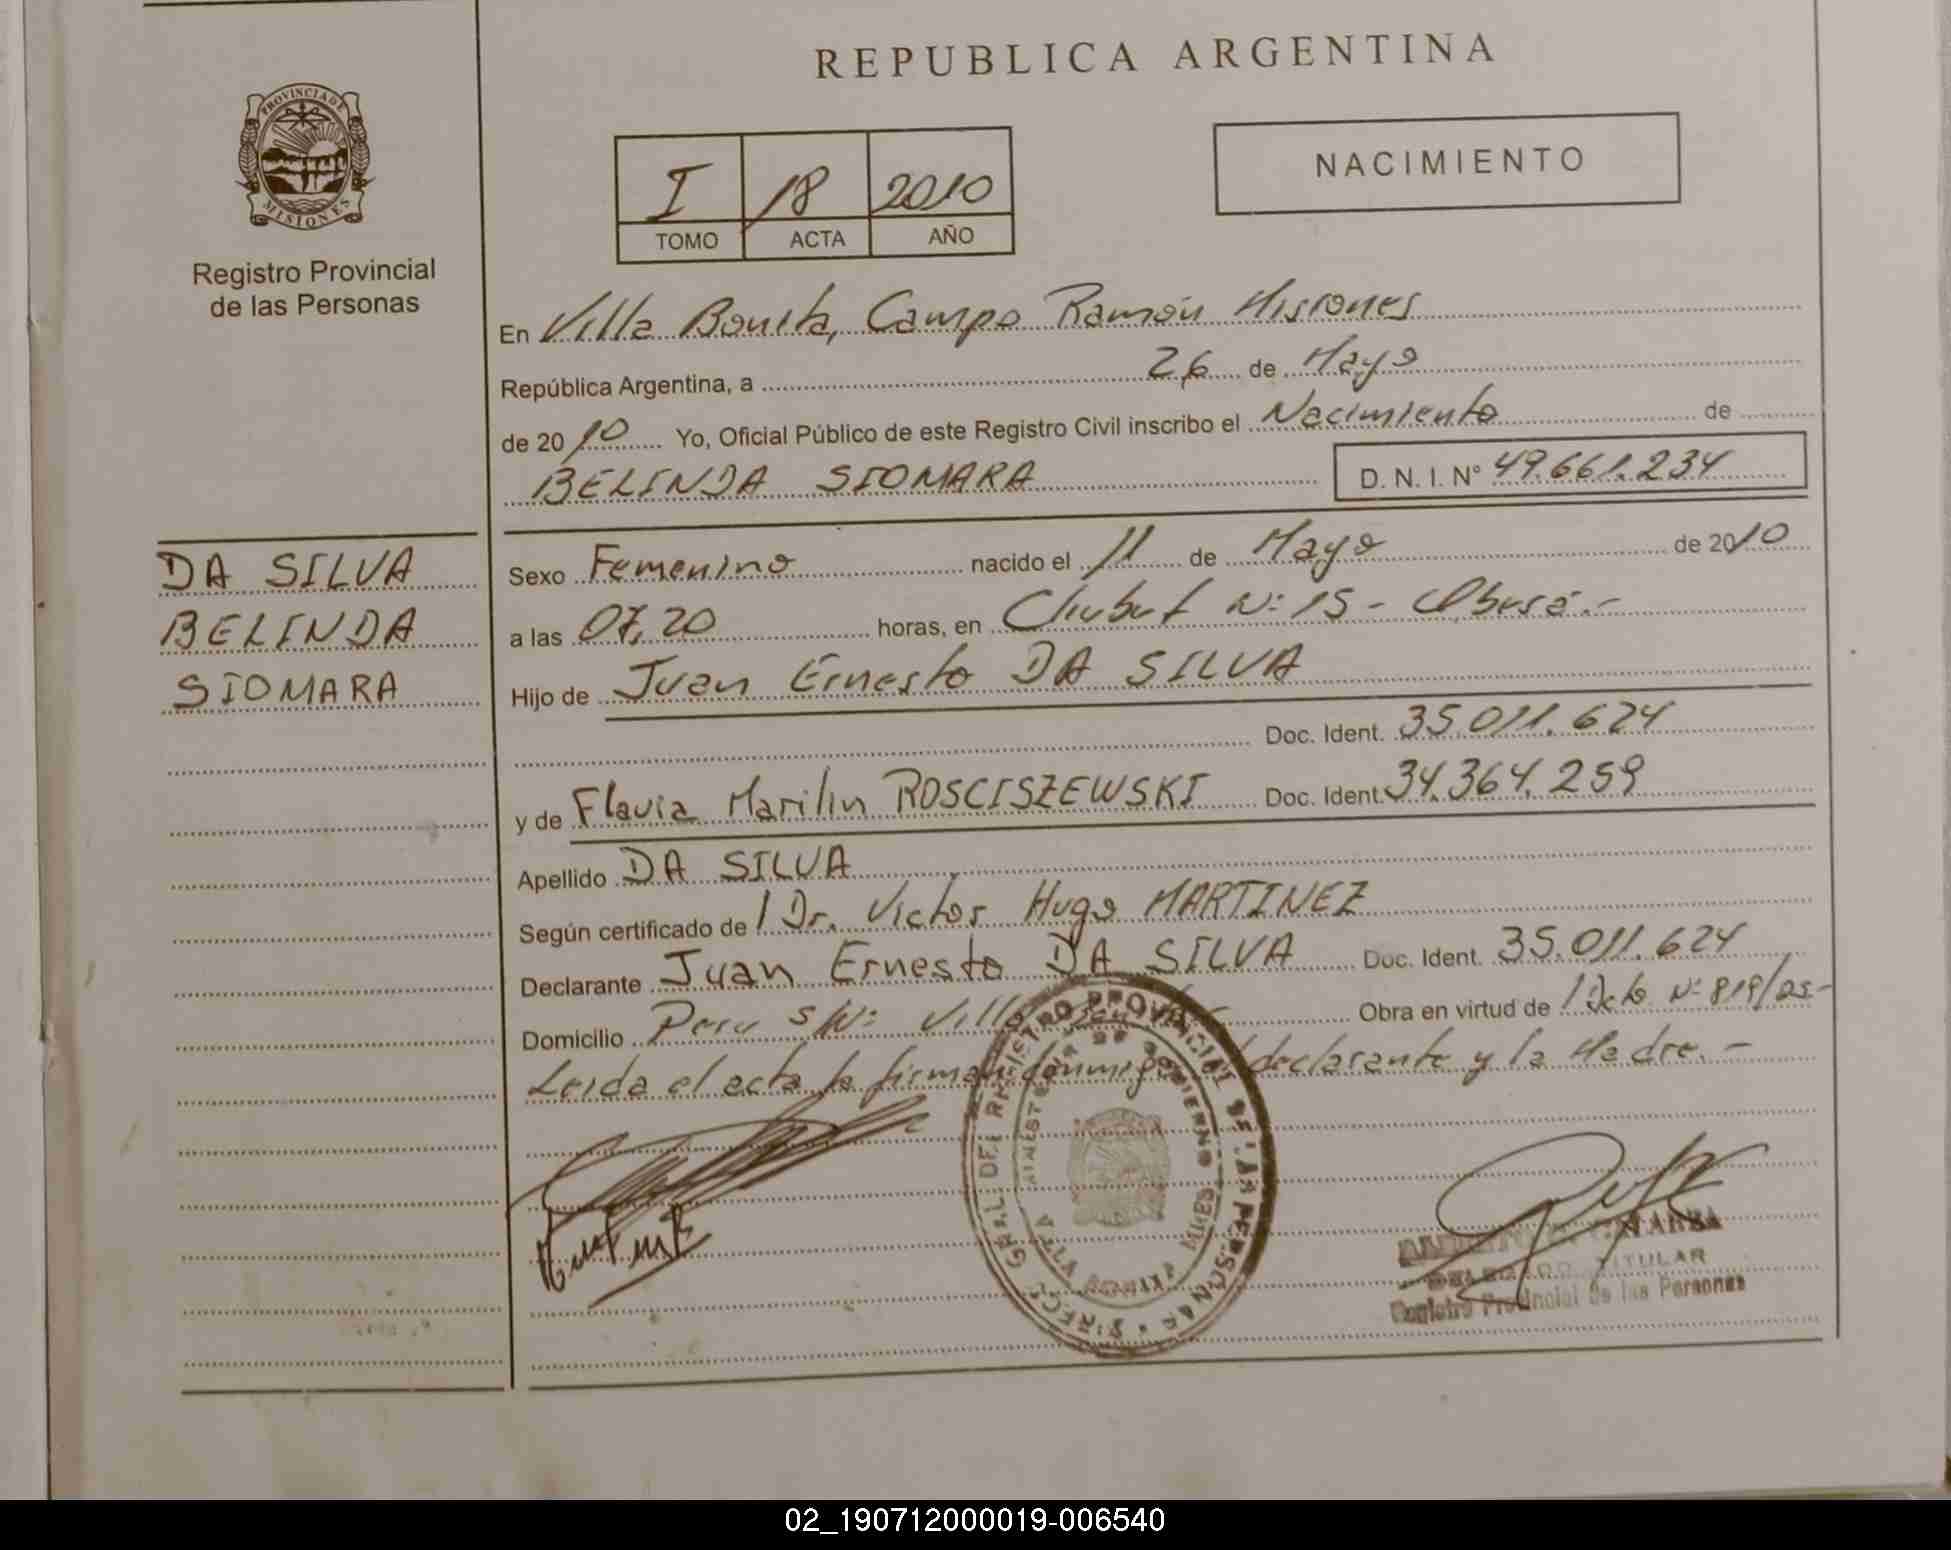 REPUBLICA ARGENTINA
PROVINCIA DE
MISIONES
Registro Provincial
de las Personas
I 18 2010
TOMO ACTA AÑO
NACIMIENTO
En Villa Bonita, Campo Ramón Misiones
República Argentina, a 26 de Mayo
de 2010 Yo, Oficial Público de este Registro Civil inscribo el Nacimiento de
BELINDA SIOMARA D. N. I. N° 49.661.234
DA SILVA
BELINDA
SIOMARA
Sexo Femenino nacido el 11 de Mayo de 2010
a las 07,20 horas, en Chubut N: 15 - Oberá.-
Hijo de Juan Ernesto DA SILVA
Doc. Ident. 35.011.624
y de Flavia Marilin ROSCISZEWSKI Doc. Ident. 34.364.259
Apellido DA SILVA
Según certificado de / Dr. Victor Hugo MARTINEZ
Declarante Juan Ernesto DA SILVA Doc. Ident. 35.011.624
Domicilio Peru S/N: Villa Obra en virtud de / Dcto N: 819/05-
Leida el acta la firman conmigo declarante y la Madre.-
REGISTRO PROVINCIAL DE LAS PERSONAS
MINISTERIO DE GOBIERNO
TITULAR
Registro Provincial de las Personas
02_190712000019-006540